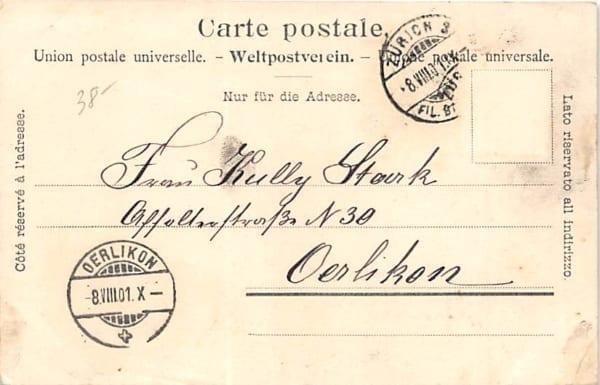 Carte postale.
Union postale universelle. - Weltpostverein. - Unione postale universale.
ZÜRICH 3
-8.VIII.01.X-
FIL. BT
38-
Nur für die Adresse.
Côté réservé à l'adresse.
Lato riservato all indirizzo.
Frau Kully Stark
Affolternstraße N 30
Oerlikon
OERLIKON
-8.VIII.01.X-